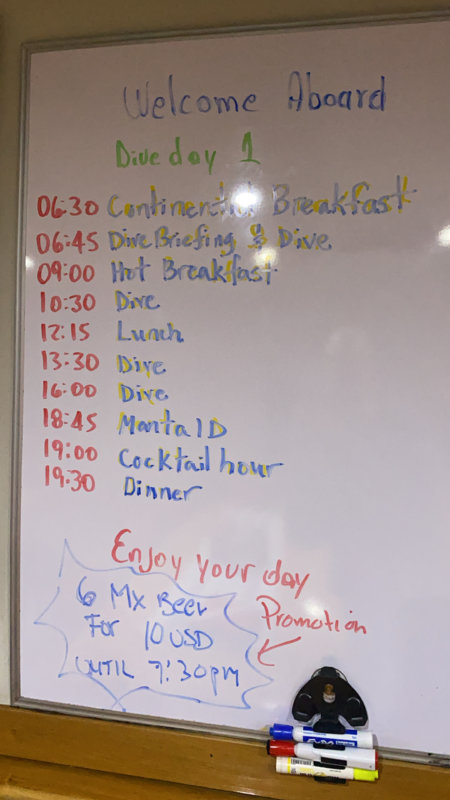 Welcome Aboard
Dive day 1
06:30 Continental Breakfast
06:45 Dive Briefing & Dive
09:00 Hot Breakfast
10:30 Dive
12:15 Lunch
13:30 Dive
16:00 Dive
18:45 Manta ID
19:00 Cocktail hour
19:30 Dinner
Enjoy your day
6 Mx Beer
For 10 USD
UNTIL 7:30pm
Promotion
EXPO